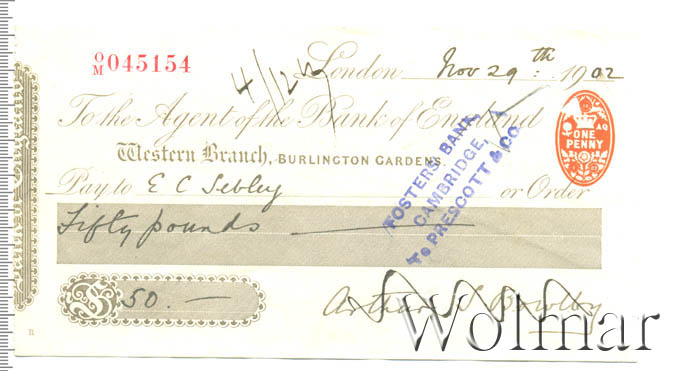 O/M 045154
4/12
London Nov 29th: 1902
To the Agent of the Bank of England
Western Branch, BURLINGTON GARDENS.
Pay to E C Sebley or Order
Fifty pounds
£50. —
Arthur S Bowlby
FOSTERS' BANK,
CAMBRIDGE,
To PRESCOTT & CO.
AQ
ONE
PENNY
B
Wolmar